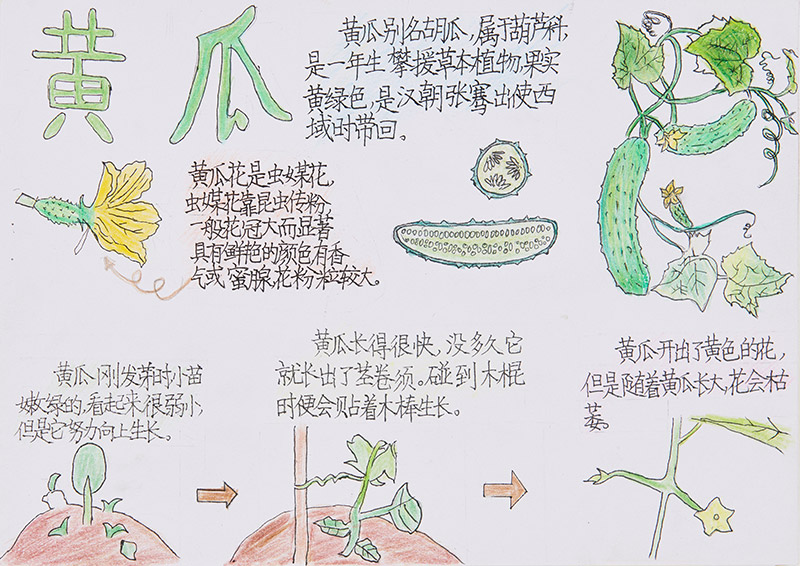 黄瓜
黄瓜别名胡瓜,属于葫芦科,
是一年生攀援草本植物,果实
黄绿色,是汉朝张骞出使西
域时带回。
黄瓜花是虫媒花,
虫媒花靠昆虫传粉,
一般花冠大而显著
具有鲜艳的颜色有香
气或蜜腺,花粉粒较大。
黄瓜刚发第时小苗
嫩绿的,看起来很弱小,
但是它努力向上生长。
黄瓜长得很快,没多久它
就长出了茎卷须。碰到木棍
时便会贴着木棒生长。
黄瓜开出了黄色的花,
但是随着黄瓜长大,花会枯
萎。